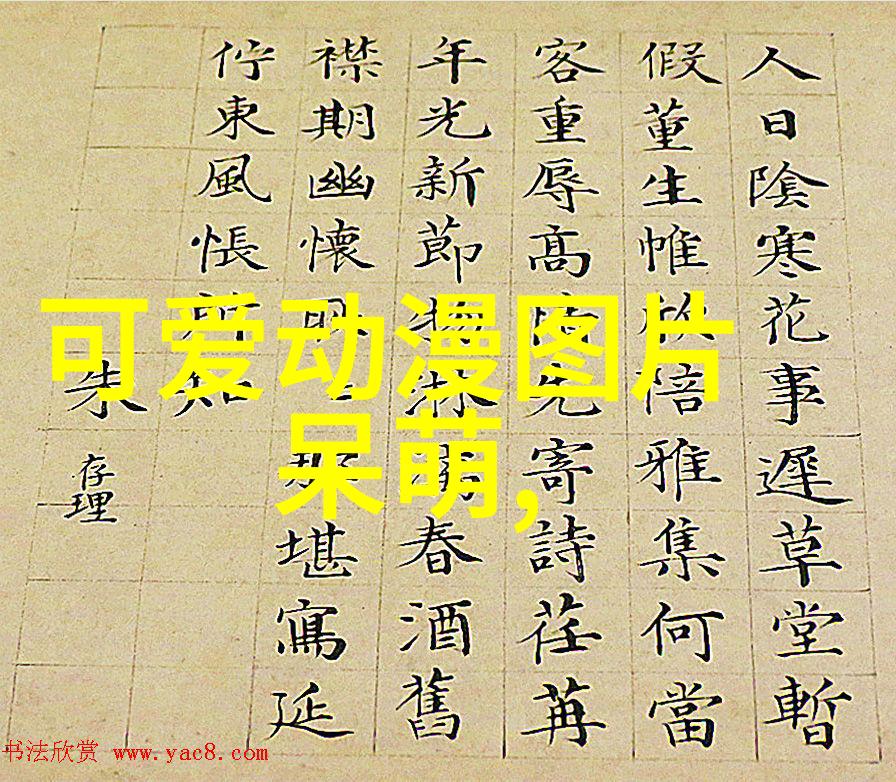 人日陰寒花事遲草堂暫
假董生帷欣陪雅集何當
客重辱高先寄詩荏苒
年光新節物淋春酒舊
襟期幽懷那堪寫延
佇東風悵所知
朱存理
可爱动漫图片
呆萌,
书法欣赏 www.yac8.com